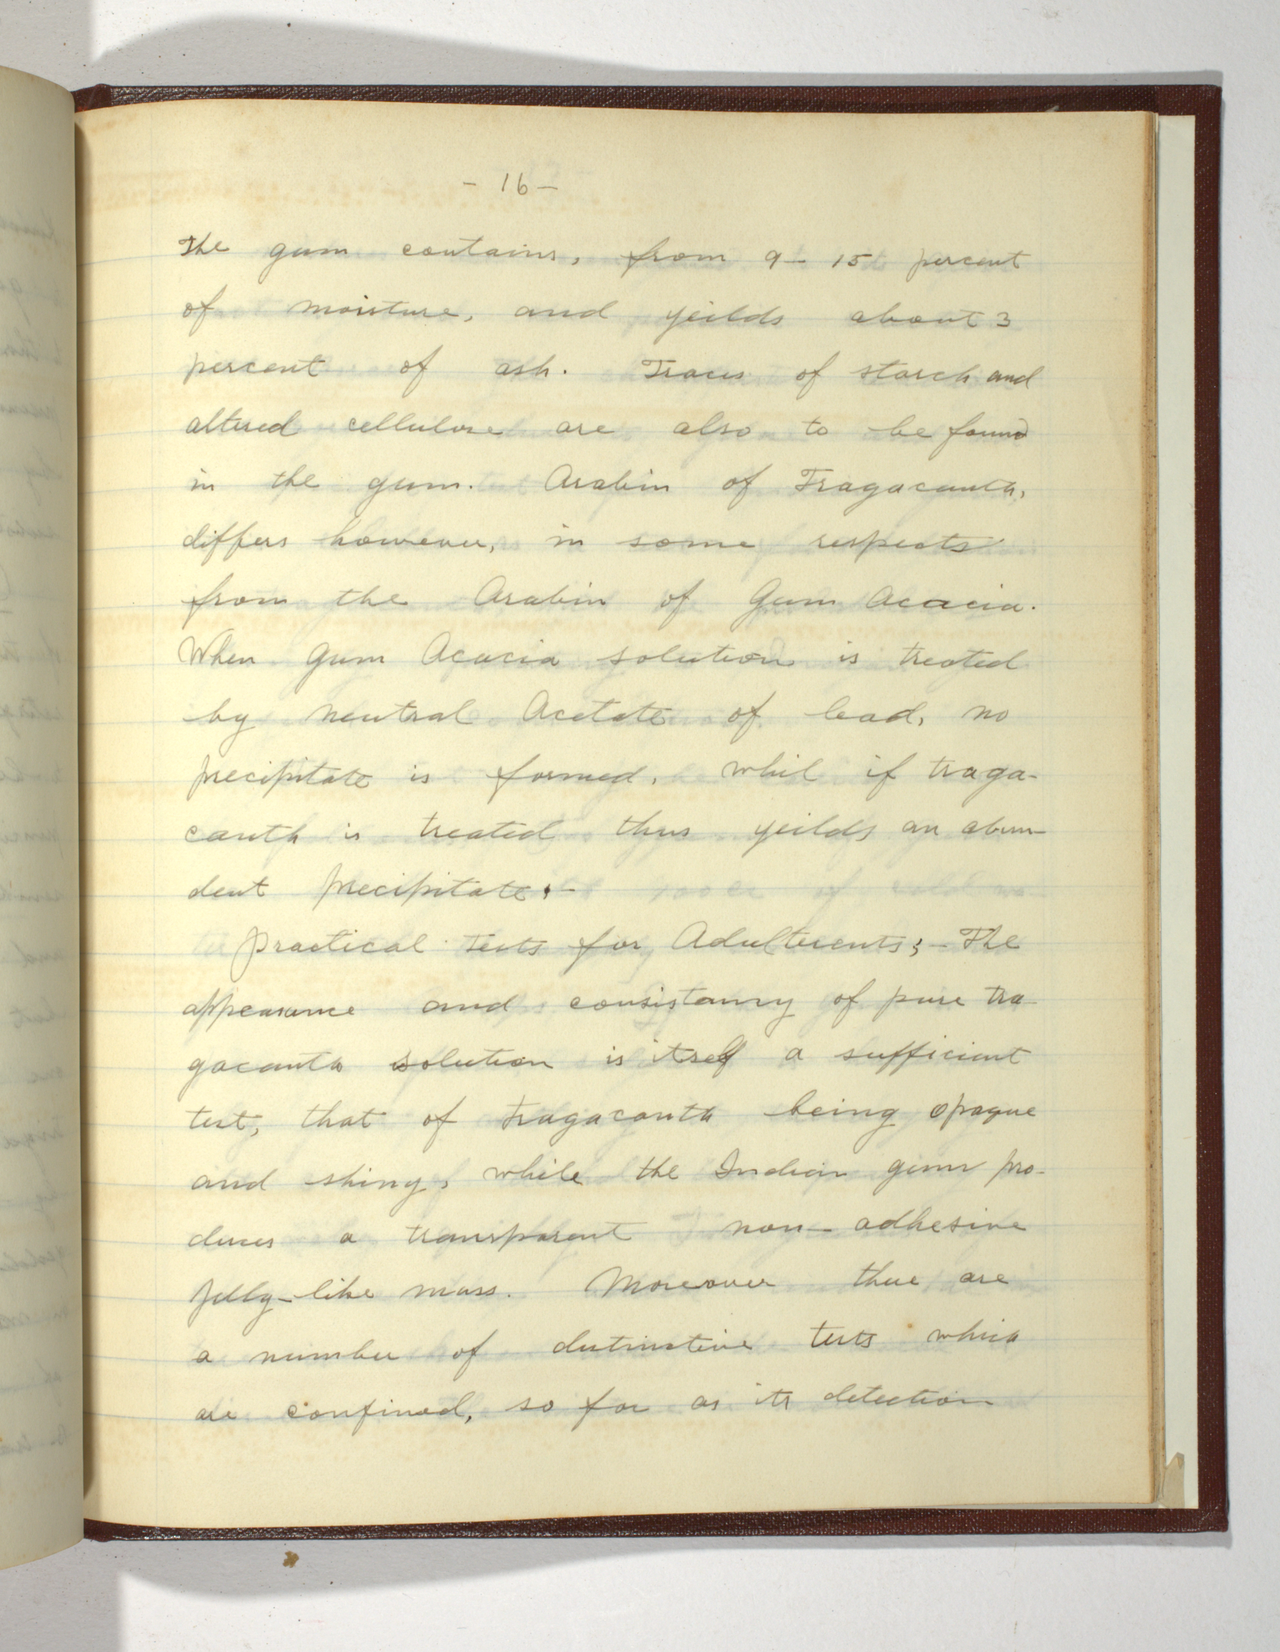 - 16 -
The gum contains, from 9 - 15 percent
of moisture, and yeilds about 3
percent of ash. Traces of starch and
altered cellulose are also to be found
in the gum. Arabin of Tragacanth,
differs however, in some respects
from the Arabin of Gum Acacia.
When Gum Acacia solution is treated
by neutral Acetate of lead, no
precipitate is formed, whil if traga-
canth is treated thus yeilds an abun-
dent precipitate.-
Practical Tests for Adulterents;- The
appearance and consistancy of pure tra-
gacanth solution is itself a sufficient
test, that of Tragacanth being opaque
and shiny, while the Indian gum pro-
duces a transparent non-adhesive
jelly-like mass. Moreover there are
a number of distinctive tests which
are confined, so far as its detection